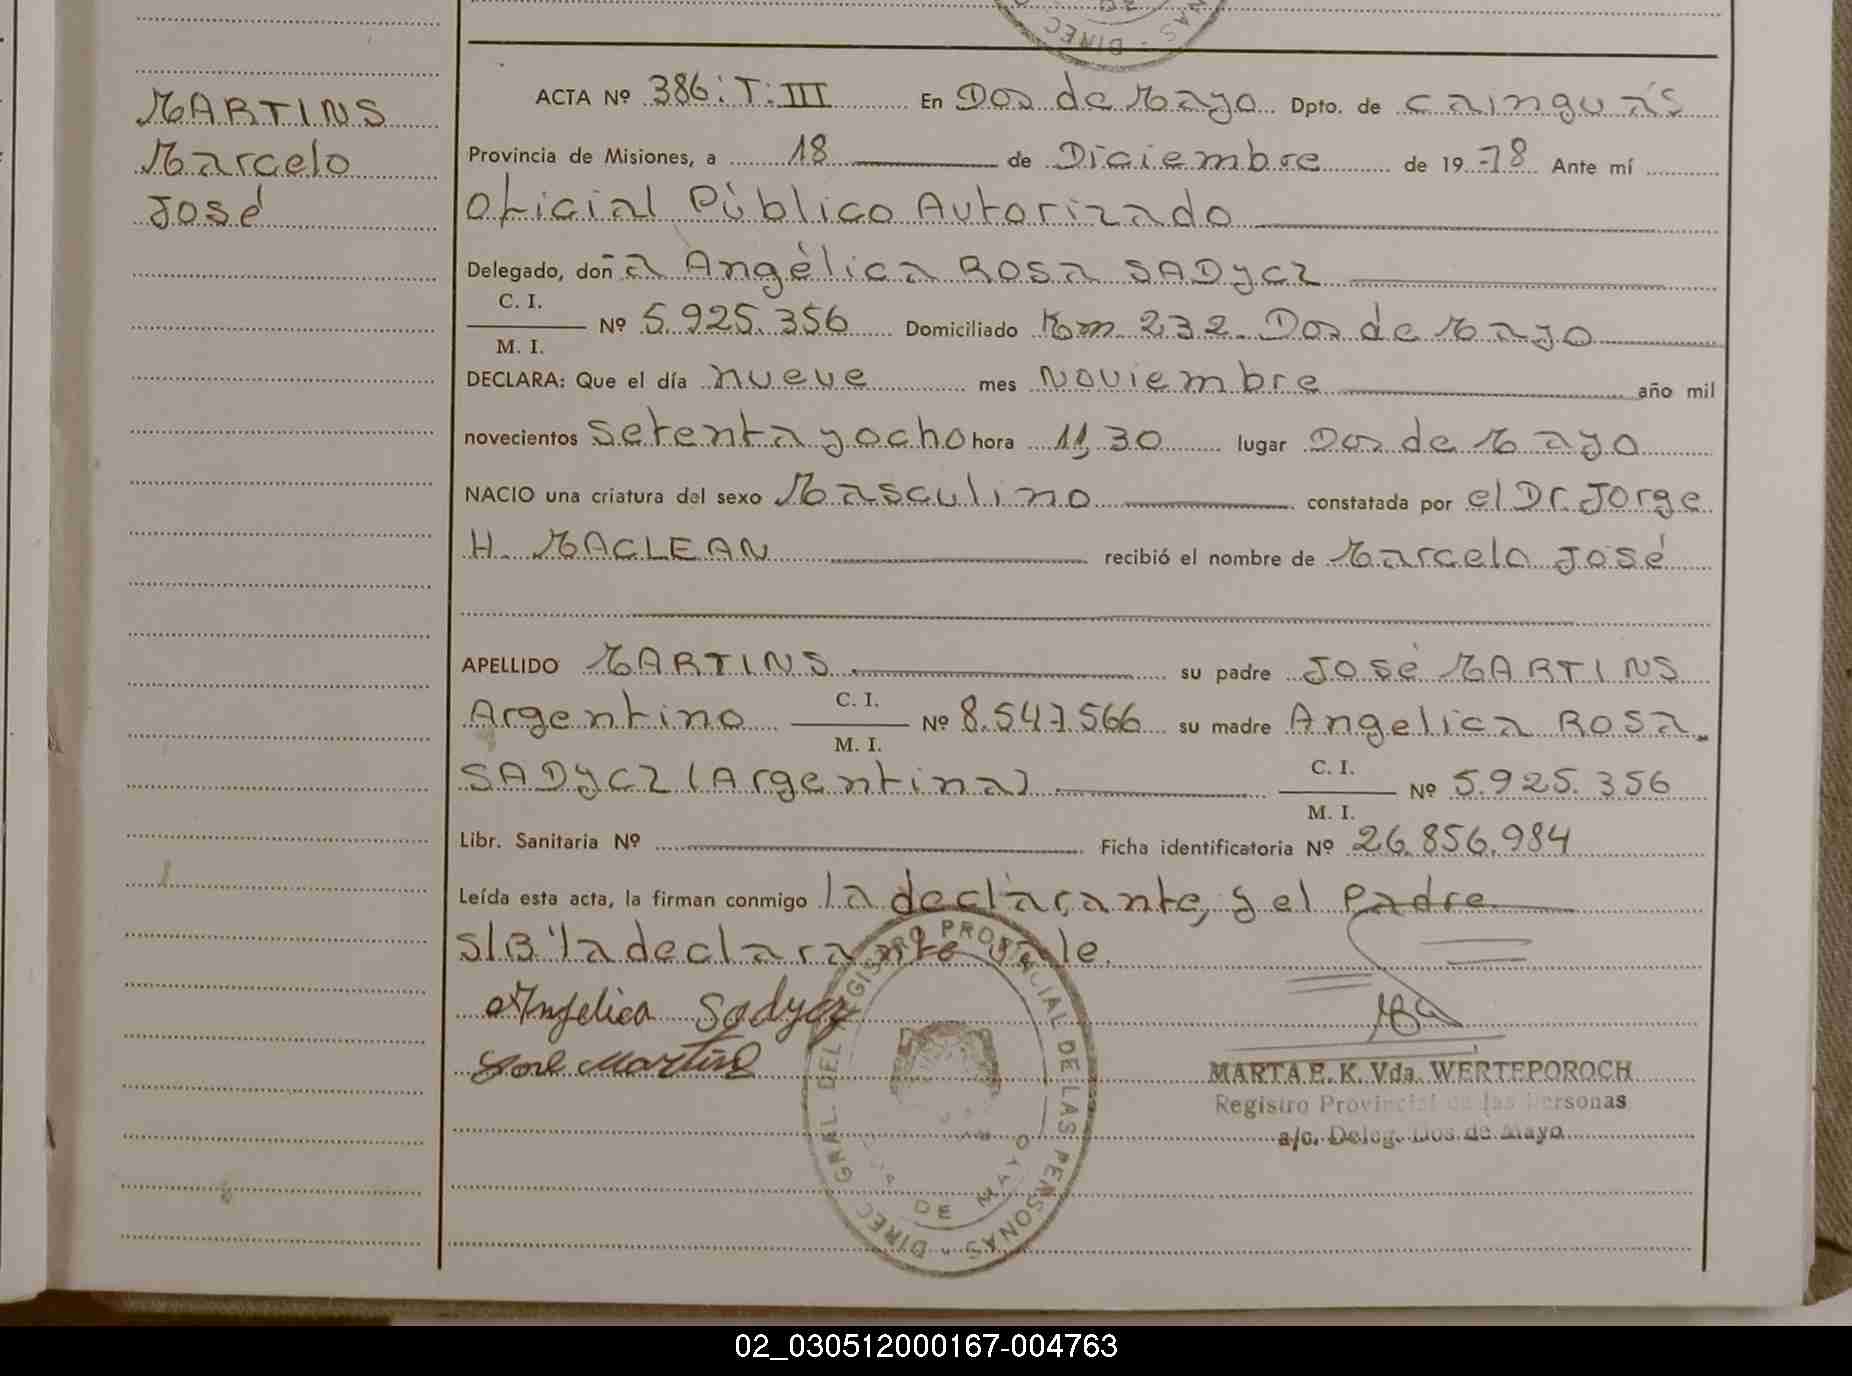 MARTINS
Marcelo
José
ACTA Nº 386: T: III En Dos de Mayo Dpto. de Cainguás
Provincia de Misiones, a 18 de Diciembre de 19 78 Ante mí
Oficial Público Autorizado
Delegado, doña Angélica Rosa SADYCZ
C. I.
Nº 5.925.356 Domiciliado Km 232 Dos de Mayo
M. I.
DECLARA: Que el día nueve mes Noviembre año mil
novecientos setenta y ocho hora 11,30 lugar Dos de Mayo
NACIO una criatura del sexo Masculino constatada por el Dr. Jorge
H. MACLEAN recibió el nombre de Marcelo José
APELLIDO MARTINS su padre José MARTINS
C. I.
Argentino Nº 8.547.566 su madre Angelica Rosa
M. I.
C. I.
SADYCZ (Argentina) Nº 5.925.356
M. I.
Libr. Sanitaria Nº Ficha identificatoria Nº 26.856.984
Leída esta acta, la firman conmigo la declarante, y el Padre
S/B "la declarante vale.
Angelica Sadycz
José Martins
DIREC. GRAL. DEL REGISTRO PROVINCIAL DE LAS PERSONAS
DE MAYO
MARTA E. K. Vda. WERTEPOROCH
Registro Provincial de las Personas
a/c. Deleg. Dos de Mayo
02_030512000167-004763